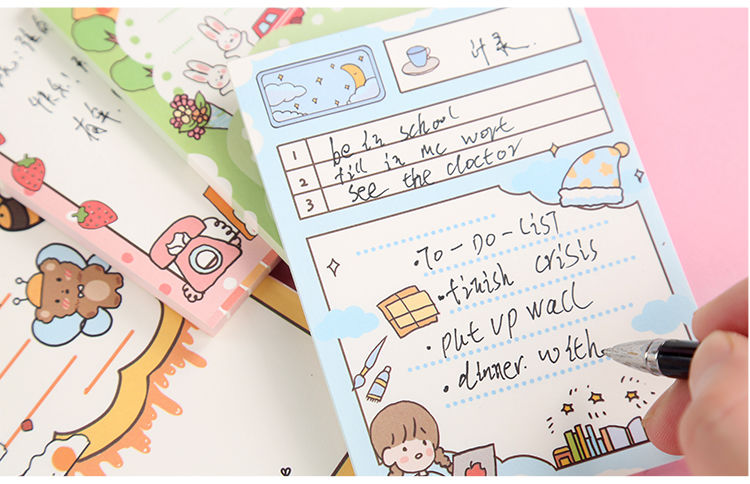 计录.
1 be in school
2 fill in mc wort
3 see the doctor
•TO-DO-LIST
•finish crisis
•put up wall
•dinner with